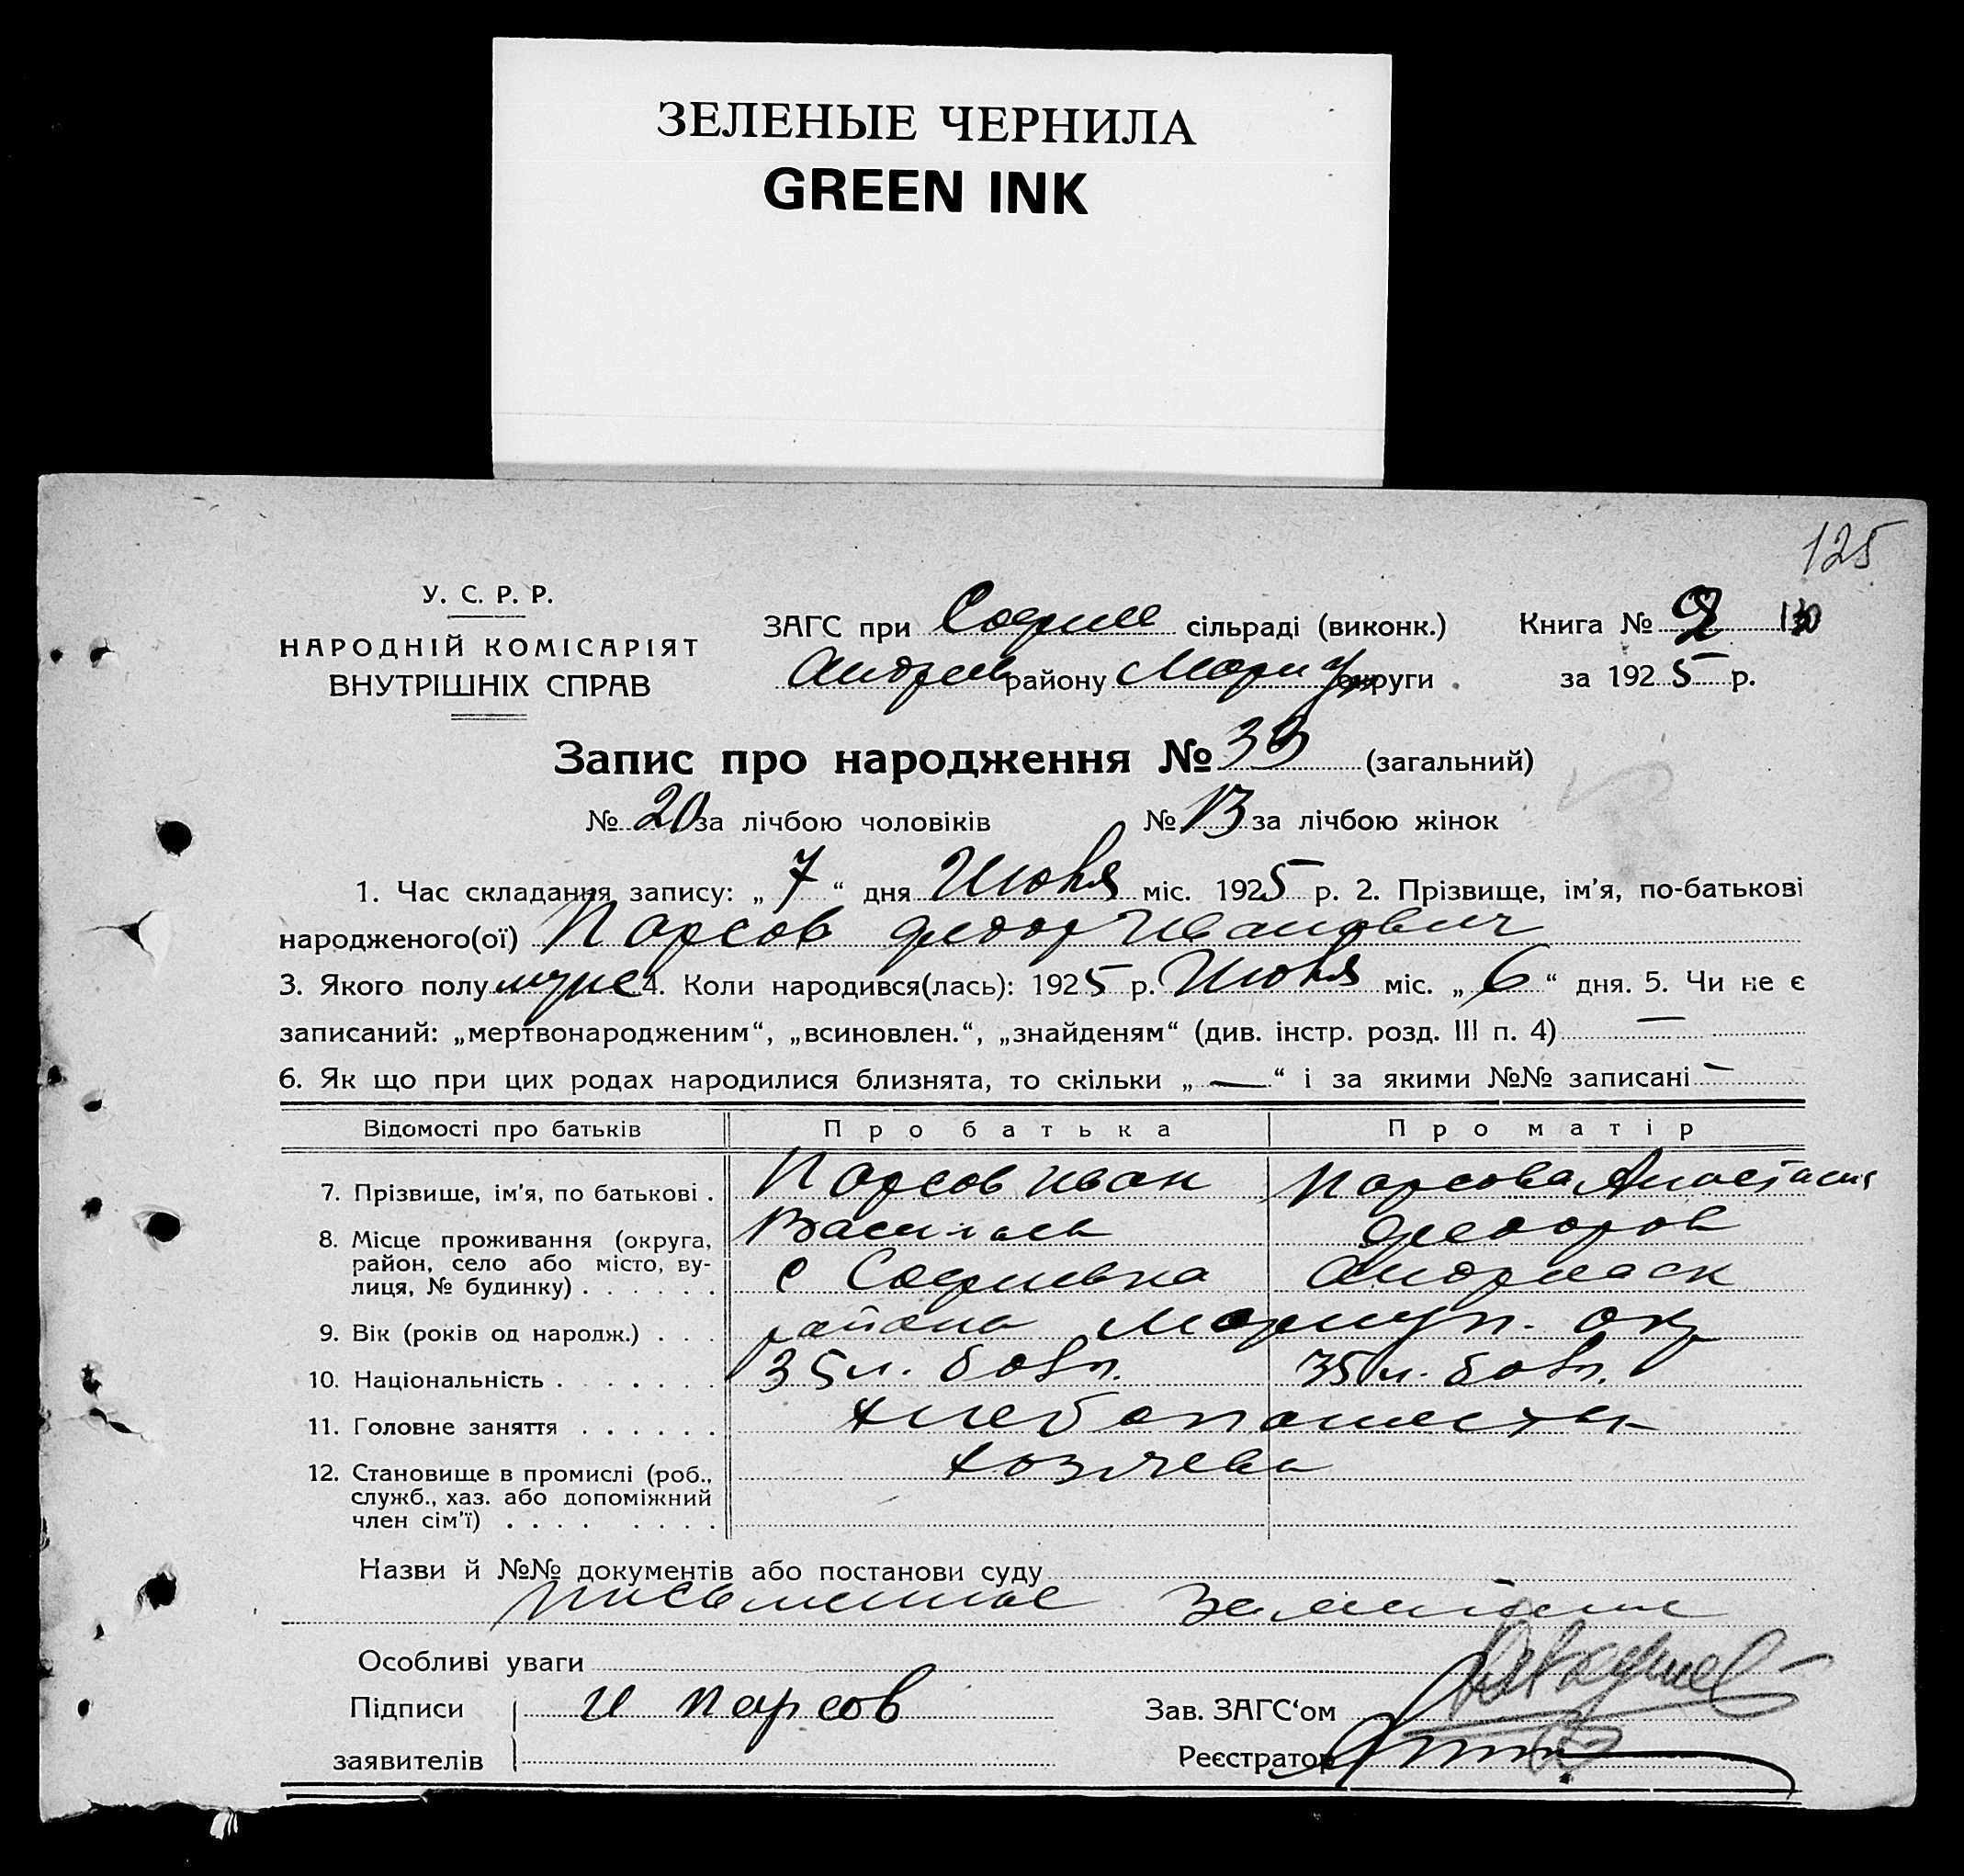 ЗЕЛЕНЫЕ ЧЕРНИЛА
GREEN INK
125
У. С. Р. Р.
НАРОДНІЙ КОМІСАРІЯТ
ВНУТРІШНІХ СПРАВ
ЗАГС при Софие сільраді (виконк.) Книга № 2
Андреев району Мариу округи за 1925 р.
Запис про народження № 33 (загальний)
№ 20 за лічбою чоловіків № 13 за лічбою жінок
1. Час складання запису: „ 7 “ дня Июля міс. 1925 р. 2. Прізвище, ім’я, по-батькові
народженого(ої) Парсов Федор Иванович
3. Якого полу муж 4. Коли народився(лась): 1925 р. Июля міс. „ 6 “ дня. 5. Чи не є
записаний: „мертвонародженим“, „всиновлен.“, „знайденям“ (див. інстр. розд. III п. 4) —
6. Як що при цих родах народилися близнята, то скільки „ — “ і за якими №№ записані —
Відомості про батьків Про батька Про матір
7. Прізвище, ім’я, по батькові . Парсов Иван Парсова Анастасия
8. Місце проживання (округа, район, село або місто, вулиця, № будинку) . . . . . . Василев Федоров
с Софиевка Андреевск
9. Вік (років од народж.) . . . района Мариуп. ок
10. Національність . . . . . . . 35 л. болг. 35 л. болг.
11. Головне заняття . . . . . . хлебопашеств
12. Становище в промислі (роб., служб., хаз. або допоміжний член сім’ї) . . . . . . . .
Назви й №№ документів або постанови суду
письменное
Особливі уваги
Підписи И Парсов Зав. ЗАГС‘ом
заявителів Реєстратор